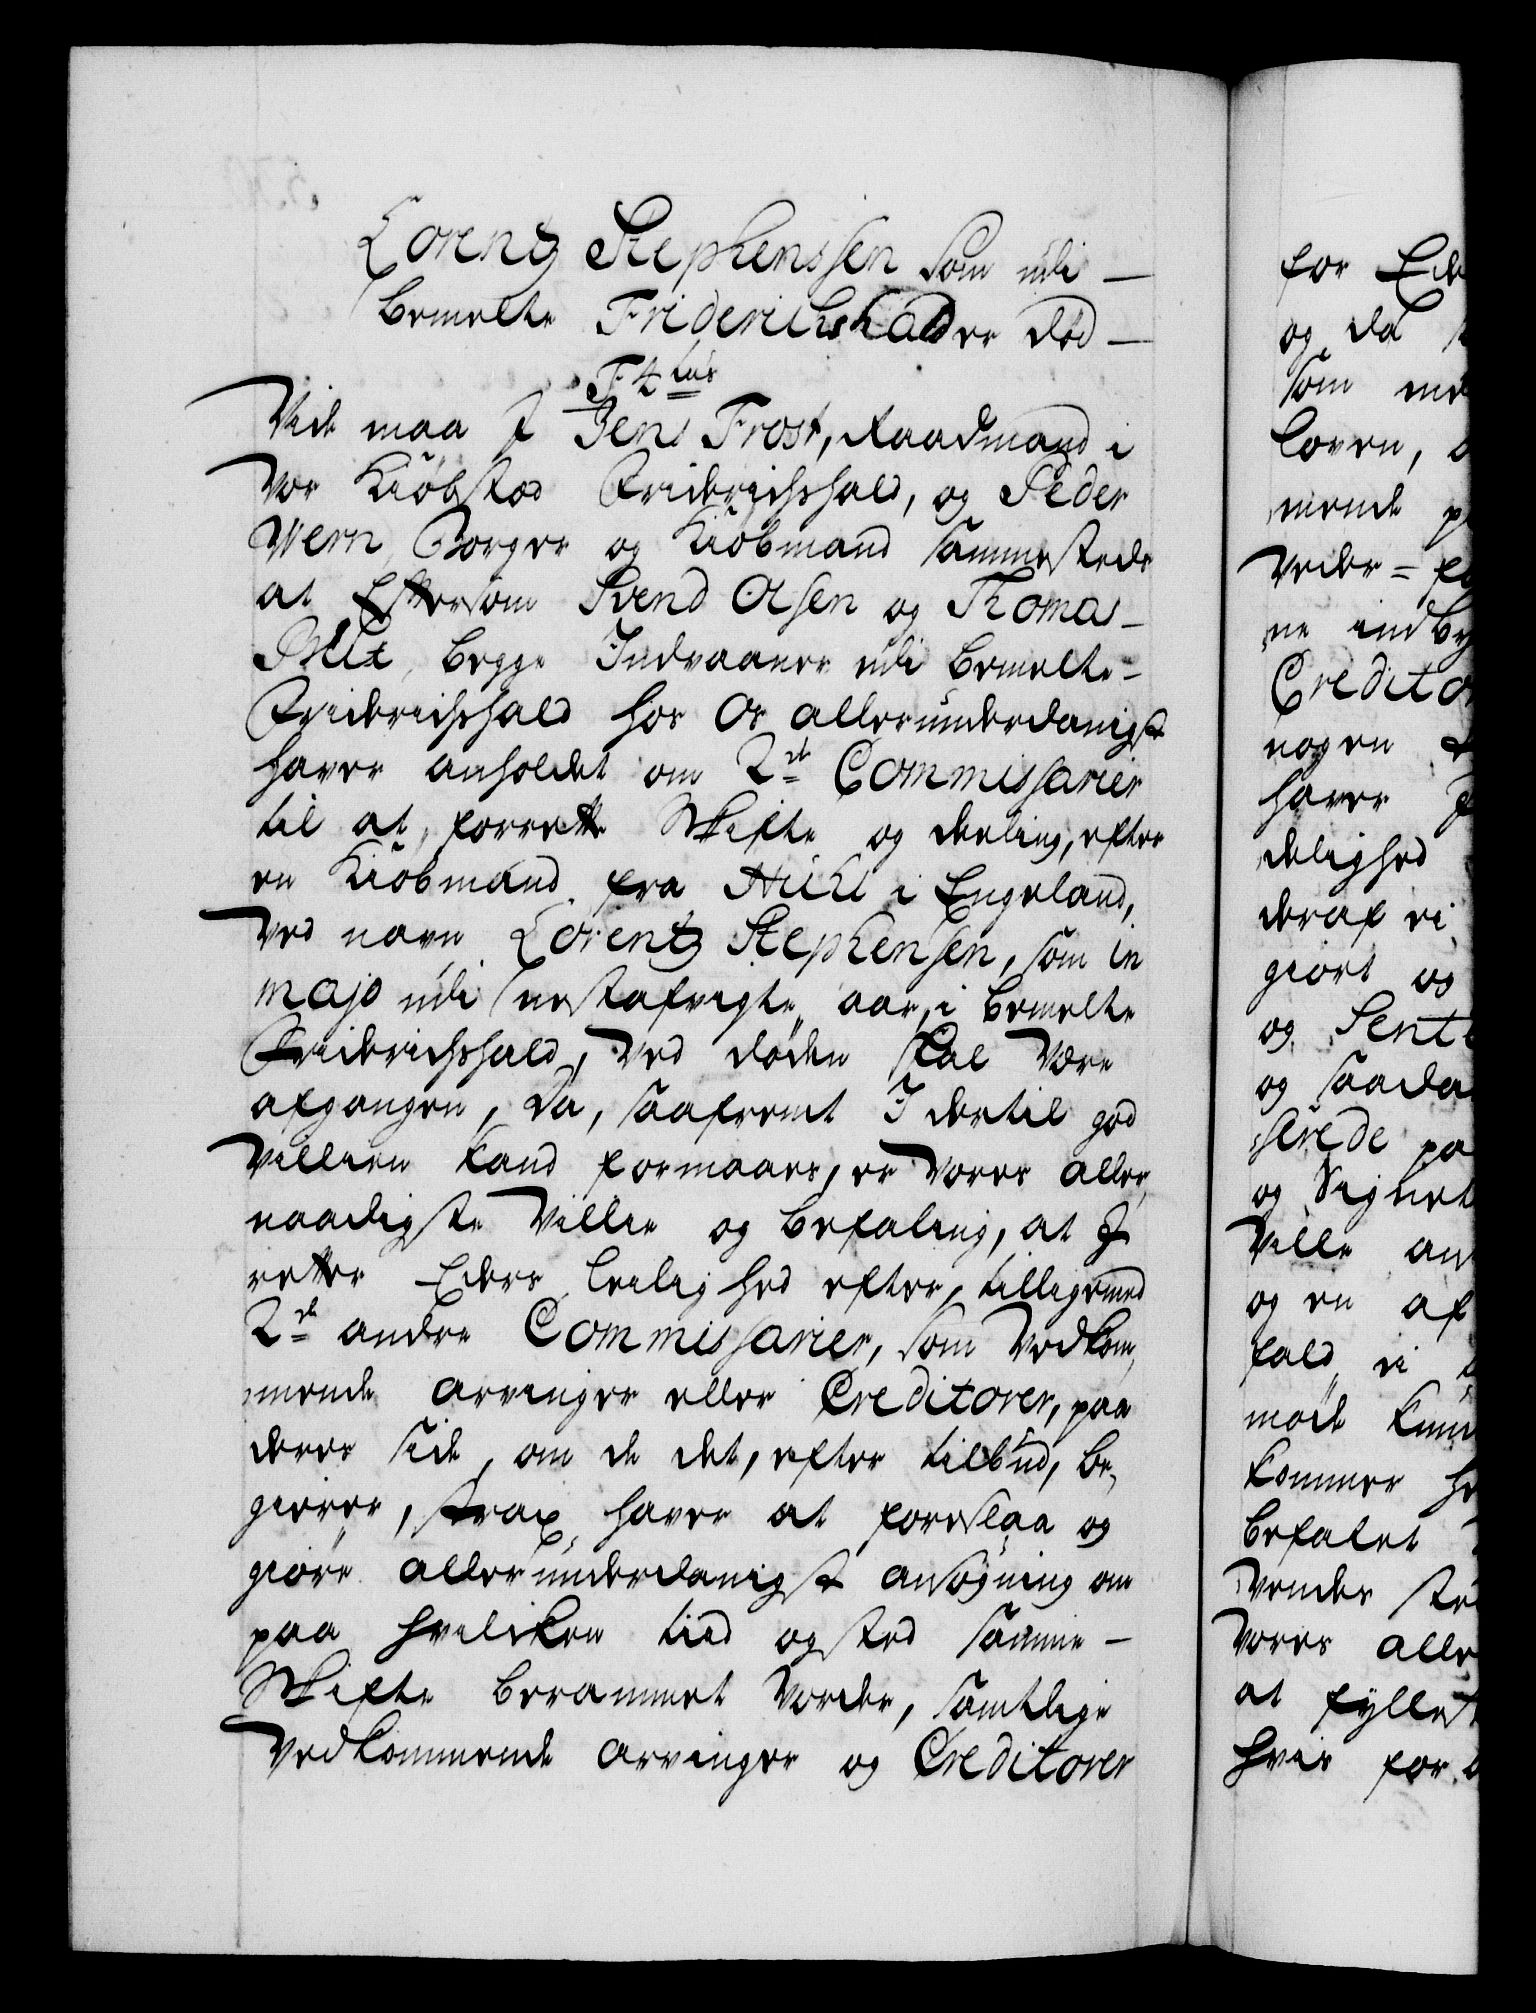 Lorentz Stephenssen som udi —
bemelte Friderichshald er død —
F4tus
Vide maa I Jens Frost, Raadmand i
Vor Kiøbstæd Friderichshald, og Peder
Wern, Borger og Kiøbmand sammestæds
at Eftersom Svend Olsen og Thomas –
begge Indvaaner udi bemelte –
Friderichshald hos Os allerunderdanigst
haver anholdet om 2de Commissarier
til at forrette Skifte og deeling, efter
en Kiøbmand fra Hull i Engeland,
Ved navn Lorentz Stephensen, som in
majo udi nestafvigte aar, i bemelte
Friderichshald, Ved døden skal Være
afgangen, Da, saafremt I dertil god
Villien kand formaaes, er Vores aller,
naadigste Villie og befaling, at I
retter Eders leilighed efter, tilligemed
2de andre Commissarier, som Vedkom,
mende arvinger eller Creditorer, paa
deres side, om de det, efter tilbud, be,
gierer, strax haver at foreslaa og
giøre allerunderdanigst ansøgning om
paa hvilken tiid og sted samme –
Skifte berammet Vorder, samtlige
Vedkommende arvinger og Creditorer
for
og da
som
loven,
mende
Veder =
ne
Creditor
nogen
haver
delighed
deraf ei
giort og
og Sent
og saada
serede pa
og Signet
Ville an
og en af
fald ei
møde kun
kommer
befalet
Vendes
Vores alle
at fyllest
hvis for